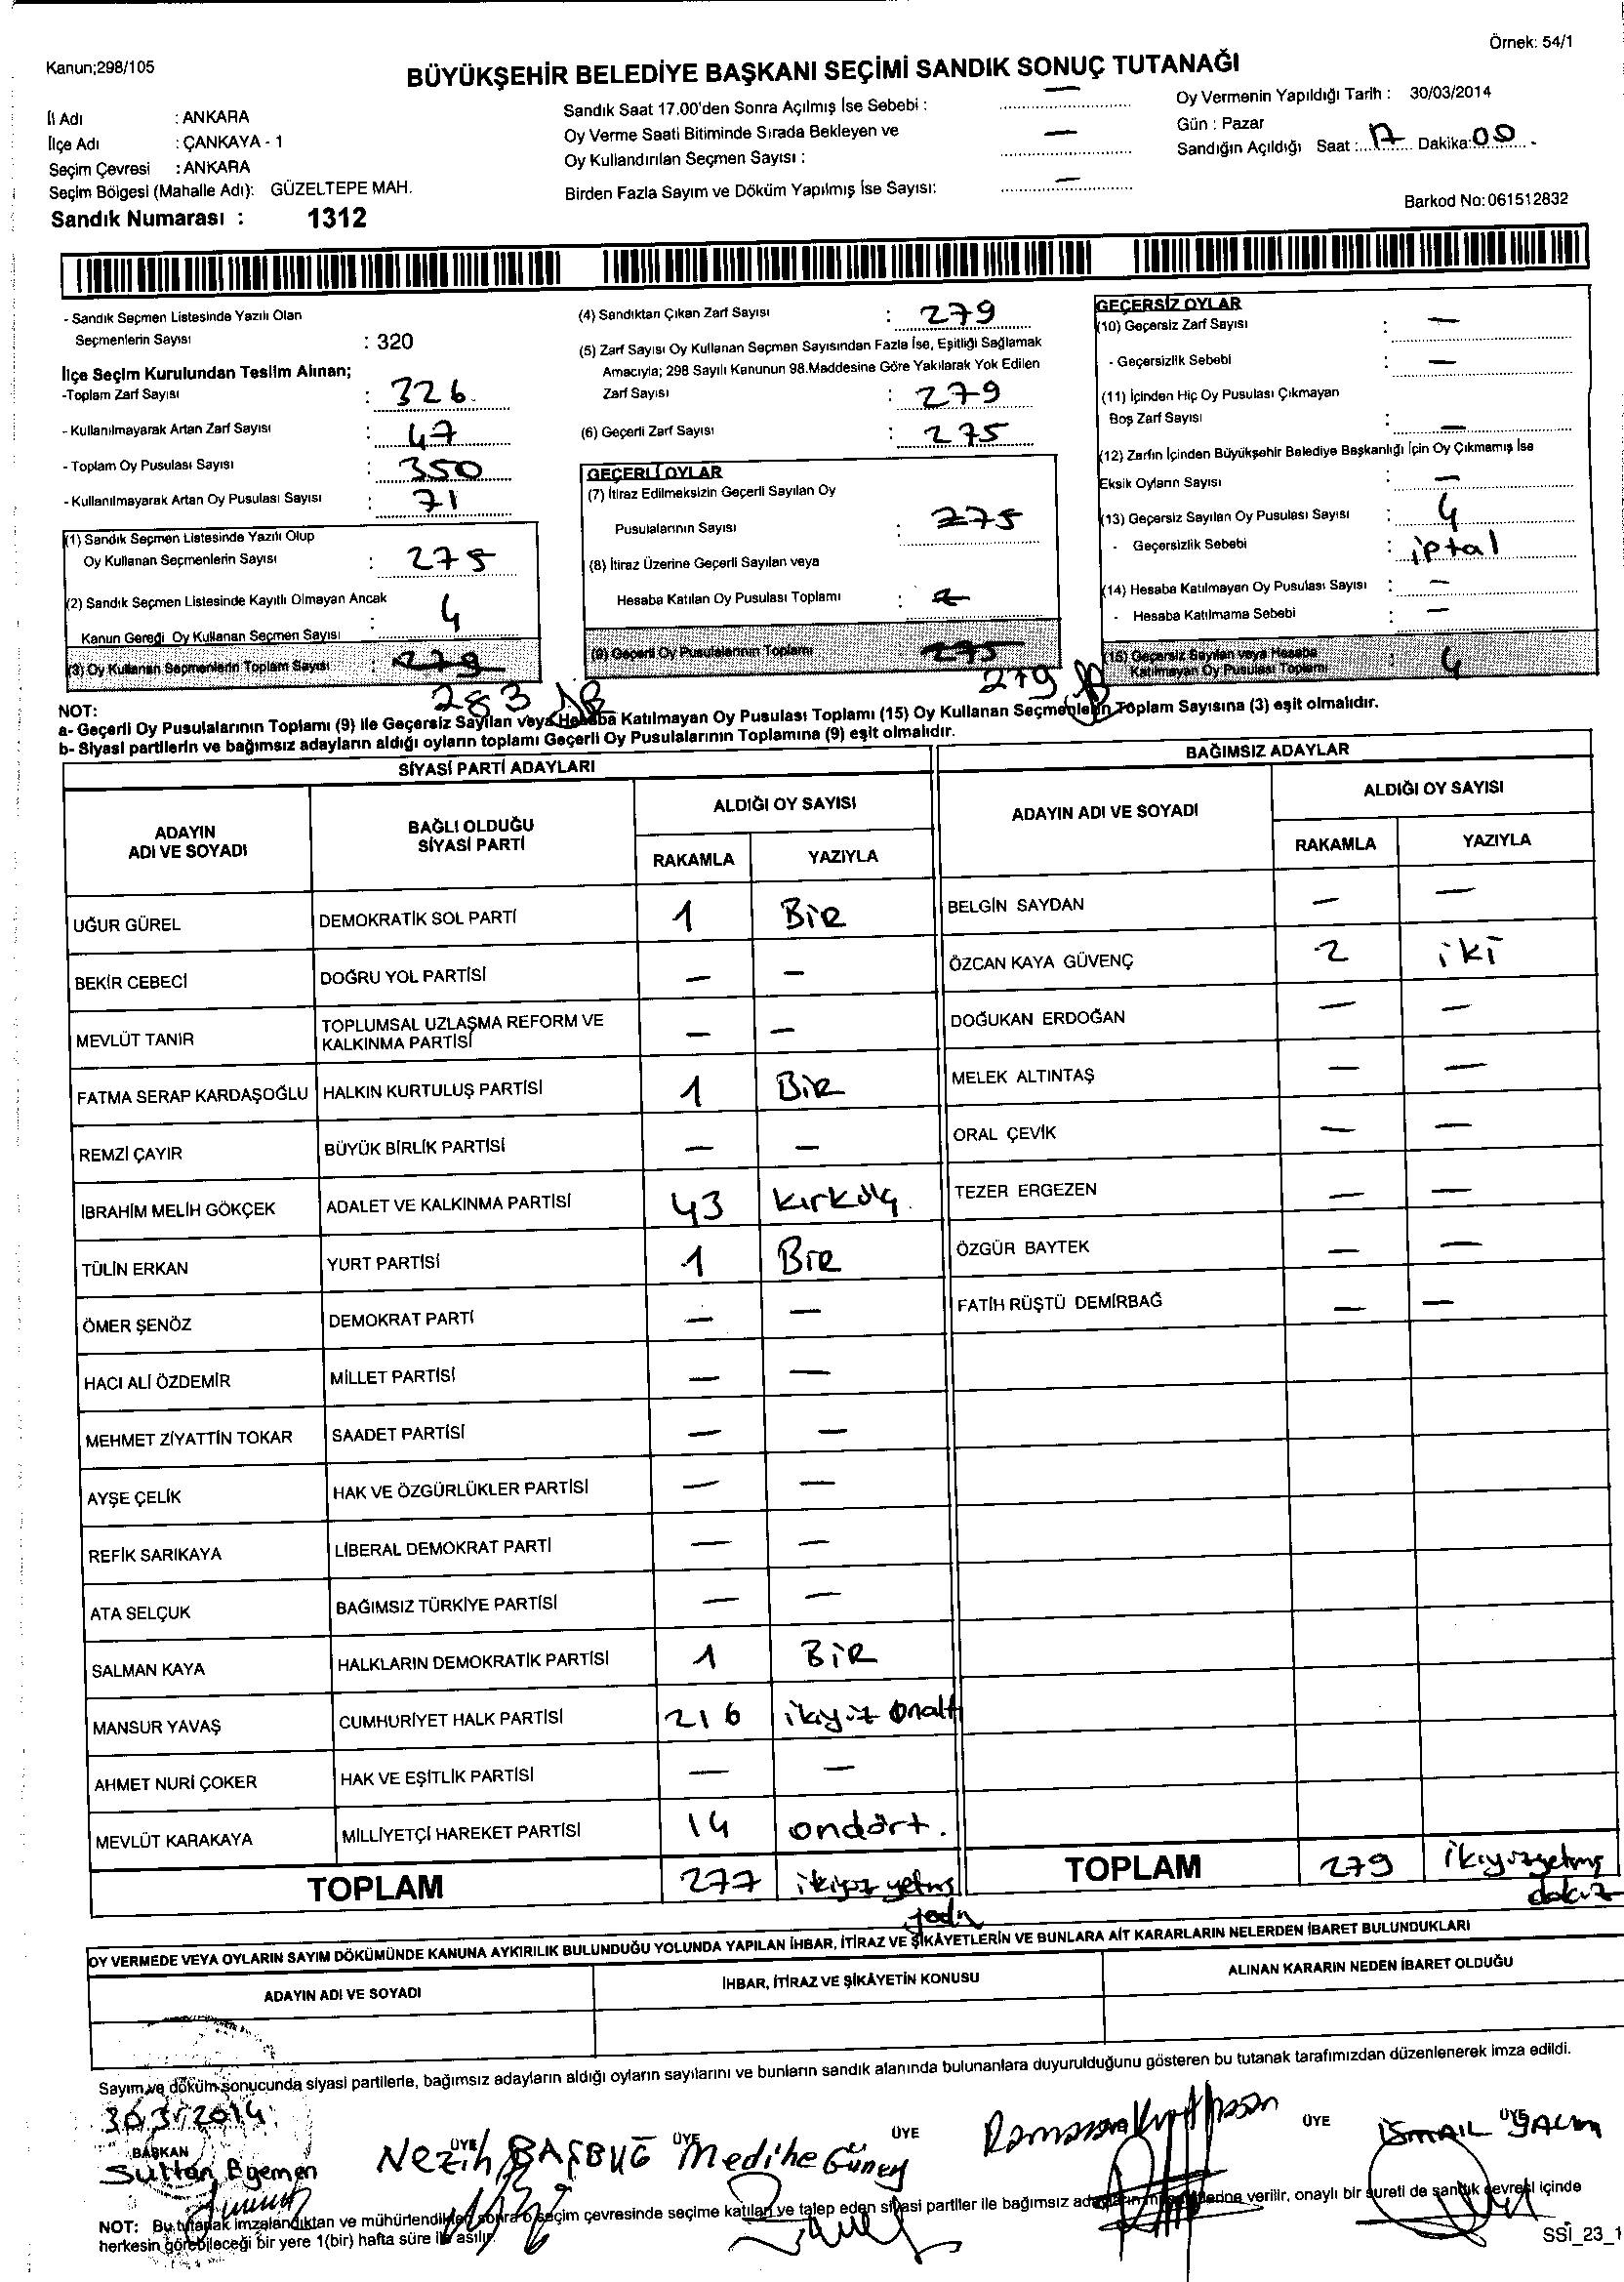 Örnek: 54/1
Kanun;298/105
BÜYÜKŞEHİR BELEDİYE BAŞKANI SEÇİMİ SANDIK SONUÇ TUTANAĞI
İl Adı : ANKARA
İlçe Adı : ÇANKAYA - 1
Seçim Çevresi : ANKARA
Seçim Bölgesi (Mahalle Adı): GÜZELTEPE MAH.
Sandık Numarası : 1312
Sandık Saat 17.00'den Sonra Açılmış İse Sebebi : —
Oy Verme Saati Bitiminde Sırada Bekleyen ve
Oy Kullandırılan Seçmen Sayısı : —
Birden Fazla Sayım ve Döküm Yapılmış İse Sayısı: —
Oy Vermenin Yapıldığı Tarih : 30/03/2014
Gün : Pazar
Sandığın Açıldığı Saat : 17 Dakika: 00
Barkod No: 061512832
- Sandık Seçmen Listesinde Yazılı Olan
Seçmenlerin Sayısı : 320
İlçe Seçim Kurulundan Teslim Alınan;
-Toplam Zarf Sayısı : 326
- Kullanılmayarak Artan Zarf Sayısı : 47
- Toplam Oy Pusulası Sayısı : 350
- Kullanılmayarak Artan Oy Pusulası Sayısı : 71
(1) Sandık Seçmen Listesinde Yazılı Olup
Oy Kullanan Seçmenlerin Sayısı : 275
(2) Sandık Seçmen Listesinde Kayıtlı Olmayan Ancak
Kanun Gereği Oy Kullanan Seçmen Sayısı : 4
(3) Oy Kullanan Seçmenlerin Toplam Sayısı : 279
283
(4) Sandıktan Çıkan Zarf Sayısı : 279
(5) Zarf Sayısı Oy Kullanan Seçmen Sayısından Fazla İse, Eşitliği Sağlamak
Amacıyla; 298 Sayılı Kanunun 98.Maddesine Göre Yakılarak Yok Edilen
Zarf Sayısı : 279
(6) Geçerli Zarf Sayısı : 275
GEÇERLİ OYLAR
(7) İtiraz Edilmeksizin Geçerli Sayılan Oy
Pusulalarının Sayısı : 275
(8) İtiraz Üzerine Geçerli Sayılan veya
Hesaba Katılan Oy Pusulası Toplamı :
(9) Geçerli Oy Pusulalarının Toplamı 275
279
GEÇERSİZ OYLAR
(10) Geçersiz Zarf Sayısı : —
- Geçersizlik Sebebi : —
(11) İçinden Hiç Oy Pusulası Çıkmayan
Boş Zarf Sayısı : —
(12) Zarfın İçinden Büyükşehir Belediye Başkanlığı İçin Oy Çıkmamış İse
Eksik Oyların Sayısı : —
(13) Geçersiz Sayılan Oy Pusulası Sayısı : 4
- Geçersizlik Sebebi : iptal
(14) Hesaba Katılmayan Oy Pusulası Sayısı : —
- Hesaba Katılmama Sebebi : —
(15) Geçersiz Sayılan veya Hesaba
Katılmayan Oy Pusulası Toplamı : 4
NOT:
a- Geçerli Oy Pusulalarının Toplamı (9) ile Geçersiz Sayılan veya Hesaba Katılmayan Oy Pusulası Toplamı (15) Oy Kullanan Seçmenlerin Toplam Sayısına (3) eşit olmalıdır.
b- Siyasi partilerin ve bağımsız adayların aldığı oyların toplamı Geçerli Oy Pusulalarının Toplamına (9) eşit olmalıdır.
SİYASİ PARTİ ADAYLARI
ADAYIN ADI VE SOYADI BAĞLI OLDUĞU SİYASİ PARTİ ALDIĞI OY SAYISI
RAKAMLA YAZIYLA
UĞUR GÜREL DEMOKRATİK SOL PARTİ 1 BİR
BEKİR CEBECİ DOĞRU YOL PARTİSİ — —
MEVLÜT TANIR TOPLUMSAL UZLAŞMA REFORM VE KALKINMA PARTİSİ — —
FATMA SERAP KARDAŞOĞLU HALKIN KURTULUŞ PARTİSİ 1 BİR
REMZİ ÇAYIR BÜYÜK BİRLİK PARTİSİ — —
İBRAHİM MELİH GÖKÇEK ADALET VE KALKINMA PARTİSİ 43 kırküç
TÜLİN ERKAN YURT PARTİSİ 1 BİR
ÖMER ŞENÖZ DEMOKRAT PARTİ — —
HACI ALİ ÖZDEMİR MİLLET PARTİSİ — —
MEHMET ZİYATTİN TOKAR SAADET PARTİSİ — —
AYŞE ÇELİK HAK VE ÖZGÜRLÜKLER PARTİSİ — —
REFİK SARIKAYA LİBERAL DEMOKRAT PARTİ — —
ATA SELÇUK BAĞIMSIZ TÜRKİYE PARTİSİ — —
SALMAN KAYA HALKLARIN DEMOKRATİK PARTİSİ 1 BİR
MANSUR YAVAŞ CUMHURİYET HALK PARTİSİ 216 ikiyüz onaltı
AHMET NURİ ÇOKER HAK VE EŞİTLİK PARTİSİ — —
MEVLÜT KARAKAYA MİLLİYETÇİ HAREKET PARTİSİ 14 ondört.
TOPLAM 277 ikiyüz yetmiş yedi
BAĞIMSIZ ADAYLAR
ADAYIN ADI VE SOYADI ALDIĞI OY SAYISI
RAKAMLA YAZIYLA
BELGİN SAYDAN — —
ÖZCAN KAYA GÜVENÇ 2 iki
DOĞUKAN ERDOĞAN — —
MELEK ALTINTAŞ — —
ORAL ÇEVİK — —
TEZER ERGEZEN — —
ÖZGÜR BAYTEK — —
FATİH RÜŞTÜ DEMİRBAĞ — —
TOPLAM 279 ikiyüzyetmiş dokuz
OY VERMEDE VEYA OYLARIN SAYIM DÖKÜMÜNDE KANUNA AYKIRILIK BULUNDUĞU YOLUNDA YAPILAN İHBAR, İTİRAZ VE ŞİKÂYETLERİN VE BUNLARA AİT KARARLARIN NELERDEN İBARET BULUNDUKLARI
ADAYIN ADI VE SOYADI İHBAR, İTİRAZ VE ŞİKÂYETİN KONUSU ALINAN KARARIN NEDEN İBARET OLDUĞU
Sayım ve döküm sonucunda siyasi partilerle, bağımsız adayların aldığı oyların sayılarını ve bunların sandık alanında bulunanlara duyurulduğunu gösteren bu tutanak tarafımızdan düzenlenerek imza edildi.
30/3/2014
BAŞKAN ÜYE ÜYE ÜYE ÜYE ÜYE
Sultan Egemen Nezih BAŞBUĞ Medihe Güney Ramazan İSMAİL YALIM
NOT: Bu tutanak imzalandıktan ve mühürlendikten sonra o seçim çevresinde seçime katılan ve talep eden siyasi partiler ile bağımsız adayların müşahitlerine verilir, onaylı bir sureti de sandık çevresi içinde
herkesin görebileceği bir yere 1(bir) hafta süre ile asılır.
SSİ_23_1